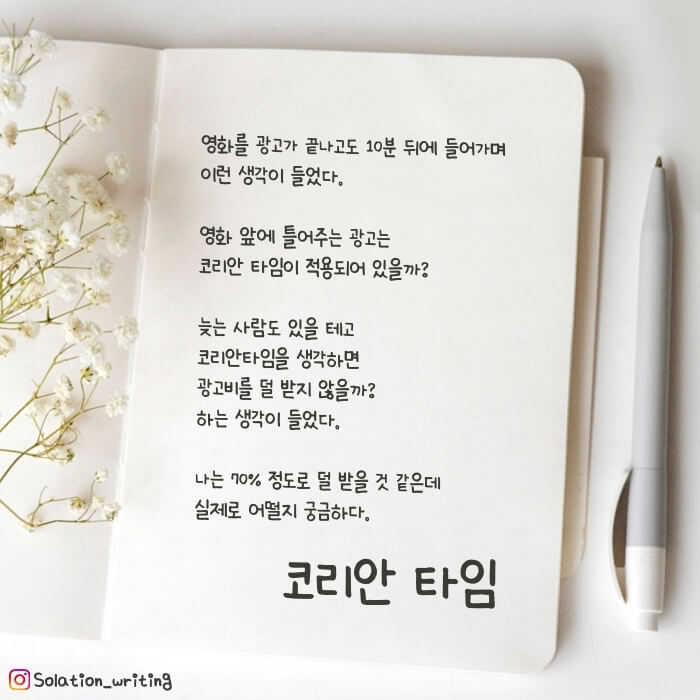 영화를 광고가 끝나고도 10분 뒤에 들어가며
이런 생각이 들었다.
영화 앞에 틀어주는 광고는
코리안 타임이 적용되어 있을까?
늦는 사람도 있을 테고
코리안타임을 생각하면
광고비를 덜 받지 않을까?
하는 생각이 들었다.
나는 70% 정도로 덜 받을 것 같은데
실제로 어떨지 궁금하다.
코리안 타임
Solation_writing